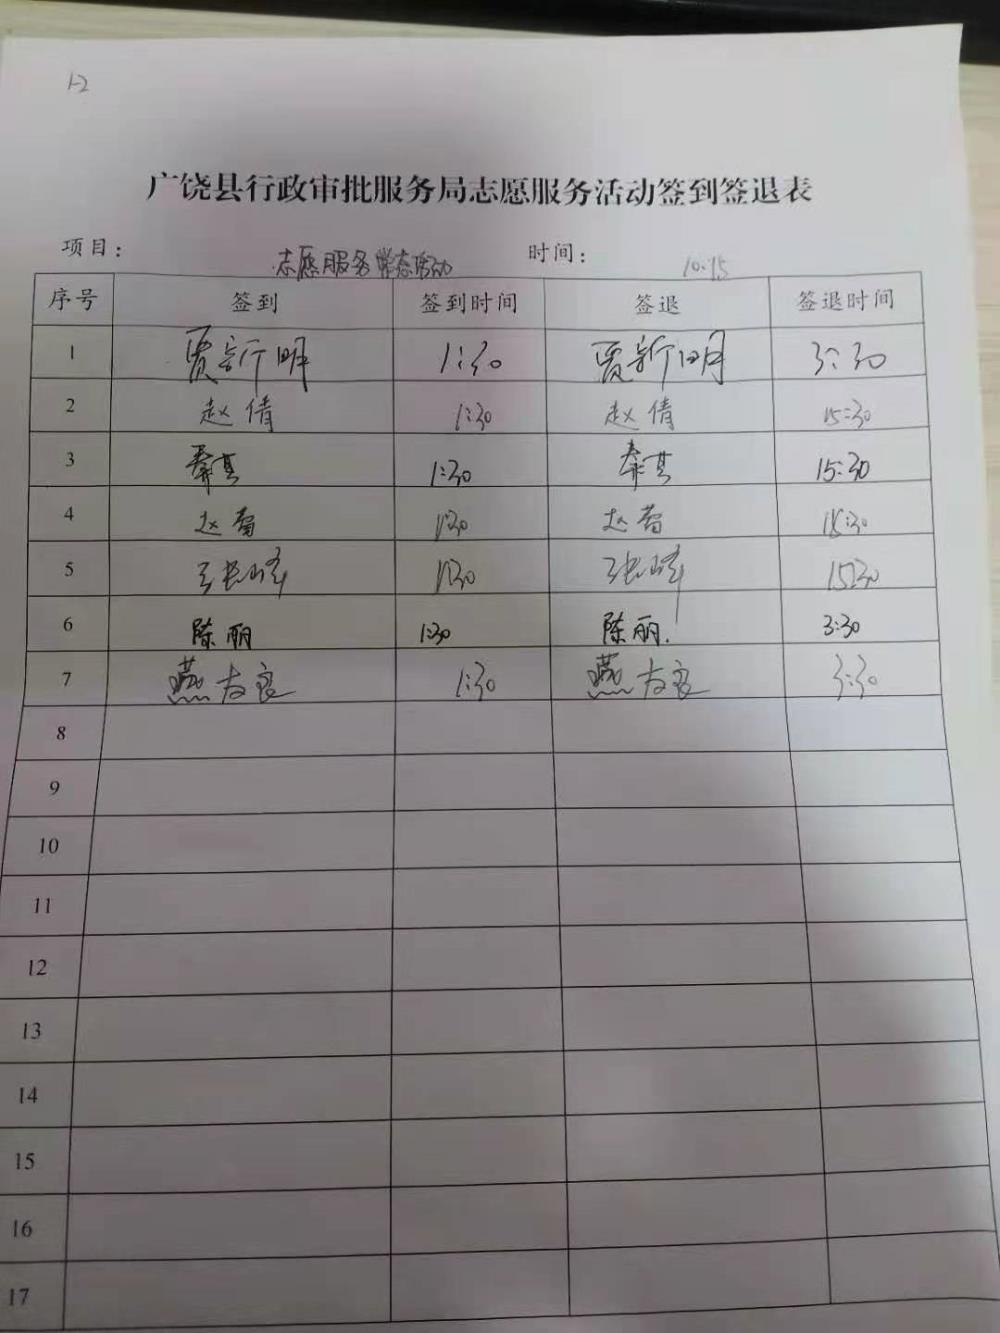 1-2
广饶县行政审批服务局志愿服务活动签到签退表
项目： 志愿服务常态活动 时间： 10.15
序号 签到 签到时间 签退 签退时间
1 贾新明 1:30 贾新明 3:30
2 赵倩 1:30 赵倩 15:30
3 1:30 15:30
4 赵 1:30 赵 15:30
5 张峰 1:30 张峰 1530
6 陈丽 1:30 陈丽. 3:30
7 燕友良 1:30 燕友良 3:30
8
9
10
11
12
13
14
15
16
17